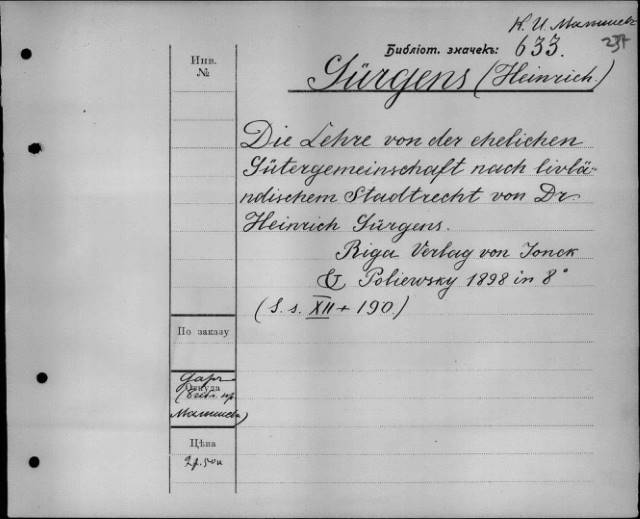 К. И. Малышев
Библіот. значекъ: 633.
237
Инв.
№
Gürgens (Heinrich.)
Die Lehre von der ehelichen
Gütergemeinschaft nach livlä-
ndischem Stadtrecht von Dr.
Heinrich Gürgens.
Riga Verlag von Jonck
& Poliewsky 1898 in 8°
(S. s. XII + 190.)
По заказу
Даръ
Откуда
(Библ. пр.
Малышева)
Цѣна
2 р. 50 к